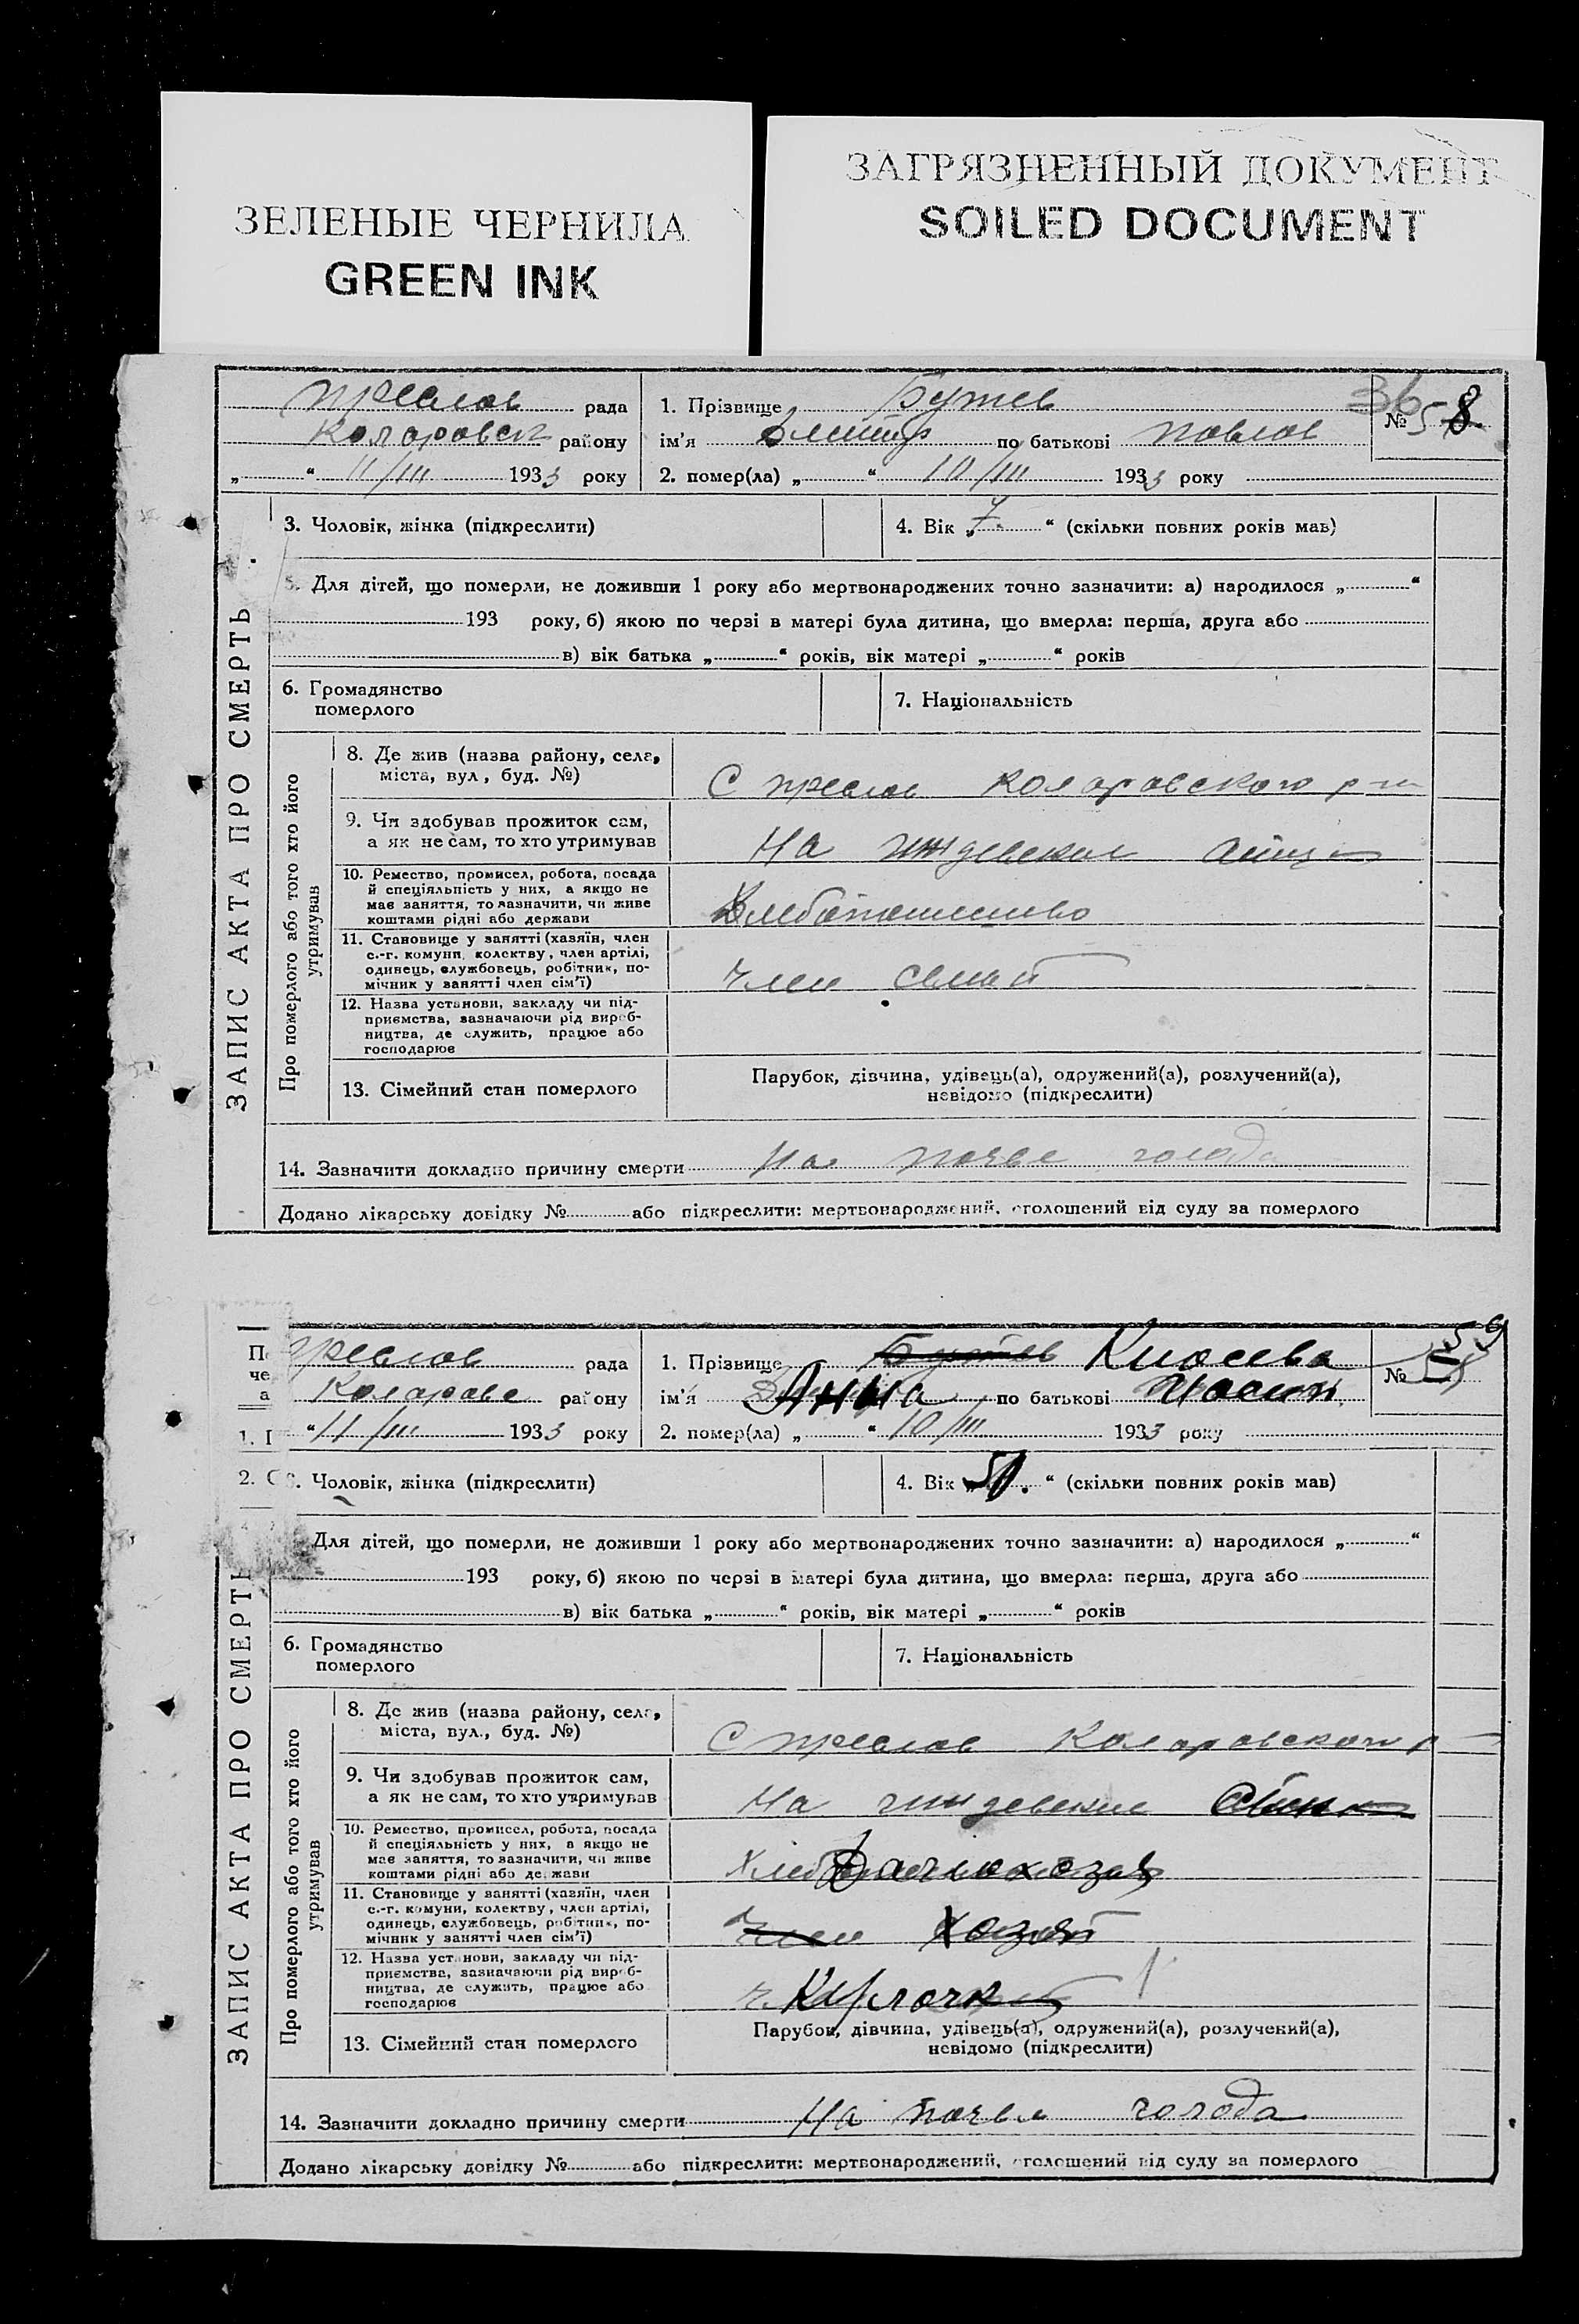 ЗЕЛЕНЫЕ ЧЕРНИЛА
GREEN INK
ЗАГРЯЗНЕННЫЙ ДОКУМЕНТ
SOILED DOCUMENT
ЗАПИС АКТА ПРО СМЕРТЬ
преслав рада
Коларовск району
„ “ 11/III 1933 року
1. Прізвище Бутев
ім’я Дмитр по батькові Павлов
2. помер(ла) „ “ 10/III 1933 року
36
№ 58
3. Чоловік, жінка (підкреслити)
4. Вік „7“ (скільки повних років мав)
5. Для дітей, що померли, не доживши 1 року або мертвонароджених точно зазначити: а) народилося „ “
193 року, б) якою по черзі в матері була дитина, що вмерла: перша, друга або
в) вік батька „ “ років, вік матері „ “ років
6. Громадянство
померлого
7. Національність
Про померлого або того хто його
утримував
8. Де жив (назва району, села,
міста, вул, буд. №)
С преслав Коларовского р-н
9. Чи здобував прожиток сам,
а як не сам, то хто утримував
На иждевение
10. Ремество, промисел, робота, посада
й спеціяльність у них, а якщо не
має заняття, то зазначити, чи живе
коштами рідні або держави
11. Становище у занятті (хазяїн, член
с.-г. комуни, колектву, член артілі,
одинець, службовець, робітник, по-
мічник у занятті член сім’ї)
член семьи
12. Назва установи, закладу чи під-
приємства, зазначаючи рід вироб-
ництва, де служить, працює або
господарює
13. Сімейний стан померлого
Парубок, дівчина, удівець(а), одружений(а), розлучений(а),
невідомо (підкреслити)
14. Зазначити докладно причину смерти На почве голода
Додано лікарську довідку № або підкреслити: мертвонароджений, оголошений від суду за померлого
ЗАПИС АКТА ПРО СМЕРТЬ
преслав рада
Коларовс району
“ 11/III 1933 року
1. Прізвище Бутев Киосева
ім’я Анна по батькові
2. помер(ла) „ “ 10/III 1933 року
№ 59
3. Чоловік, жінка (підкреслити)
4. Вік „ “ (скільки повних років мав)
Для дітей, що померли, не доживши 1 року або мертвонароджених точно зазначити: а) народилося „ “
193 року, б) якою по черзі в матері була дитина, що вмерла: перша, друга або
в) вік батька „ “ років, вік матері „ “ років
6. Громадянство
померлого
7. Національність
Про померлого або того хто його
утримував
8. Де жив (назва району, села,
міста, вул., буд. №)
С преслав Коларовского р
9. Чи здобував прожиток сам,
а як не сам, то хто утримував
На иждевение
10. Ремество, промисел, робота, посада
й спеціяльність у них, а якщо не
має заняття, то зазначити, чи живе
коштами рідні або держави
11. Становище у занятті (хазяїн, член
с.-г. комуни, колектву, член артілі,
одинець, службовець, робітник, по-
мічник у занятті член сім’ї)
член
12. Назва установи, закладу чи під-
приємства, зазначаючи рід вироб-
ництва, де служить, працює або
господарює
13. Сімейний стан померлого
Парубок, дівчина, удівець(а), одружений(а), розлучений(а),
невідомо (підкреслити)
14. Зазначити докладно причину смерти На почве голода
Додано лікарську довідку № або підкреслити: мертвонароджений, оголошений від суду за померлого